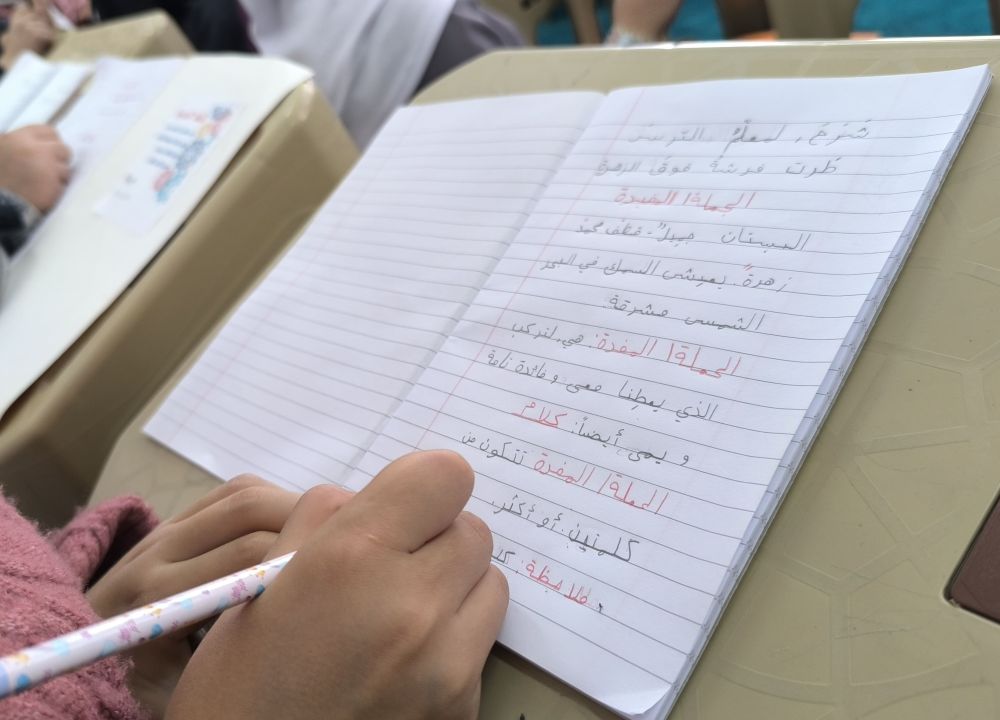 شَرَحَ. المعلمُ الدرسَ
طرت فرشة فوق الزهرة
الجملة المفيدة
البستان جميلٌ - قطف محمد
زهرةً. يعيش السمك في البحر
الشمس مشرقة.
الجملة المفدة: هي لتركب
الذي يعطِنا معى و فائدة تامة
و يمى أيضاً: كلام
الجملة المفدة تتكون من
كلمتين أو أكثر.
ملاحظة: